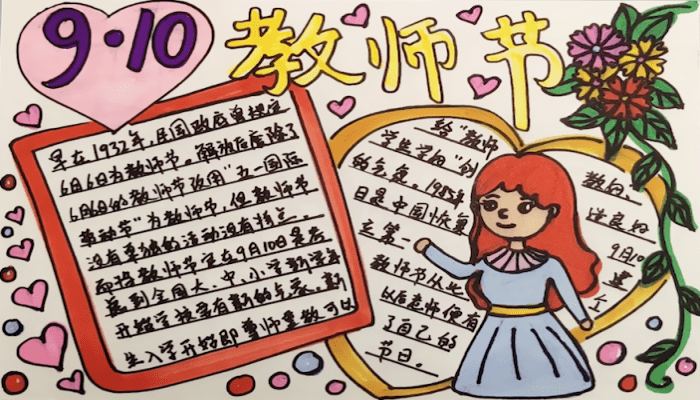 9·10 教师节
早在1932年,民国政府曾规定
6月6日为教师节。解放后废除了
6月6日的教师节改用"五一国际
劳动节"为教师节,但教师节
没有单独的活动没有特点。
而将教师节定在9月10日是考
虑到全国大、中、小学新学年
开始学校要有新的气象。新
生入学开始即尊师重教可以
给"教师 教好,
学生学好"创 造良好
的气氛。1985年 9月10
日是中国恢复 建
立第一 个
教师节从此
以后老师便有
了自己的
节日。